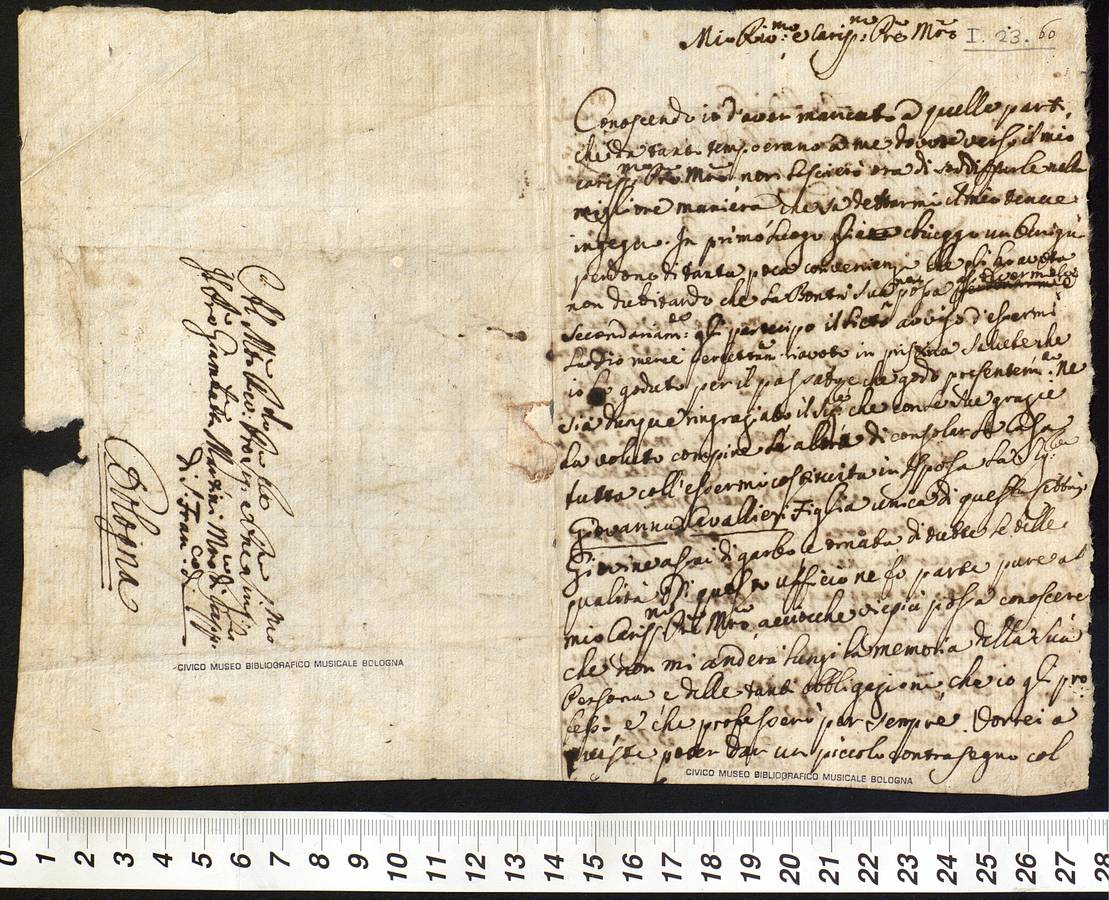 Mio Riv.mo e Cariss.mo Pre Mro I. 23. 60
Conoscendo io d'aver mancato a quelle parti,
che da tanto tempo erano a me dovute verso il mio
cariss.mo Pre Mro non lascierò ora di soddisfarle nella
migliore maniera che sà dettarmi il mio tenue
ingegno. In primo luogo chieggo un benigno
perdono di tanta poca convenienza che gli ho avuta
non dubitando che la Bontà sua possa
Secondariam.te gli partecipo il lieto avviso d'essermi
la Dio mercè riavuto in pristina salute che
io ho goduto per il passato e che godo presentem.te Ne
sia dunque ringraziato il Sig.e che con le sue grazie
ha voluto compire di consolar la Casa
tutta coll'essermi costituita in Isposa la Sig.ra
Giovanna Cavallieri Figlia unica di questa
Giovine assai di garbo e ornata di tutte le belle
qualità Di questo ufficio ne fo parte pure al
mio Cariss.mo Pre Mro acciocche viepiù possa conoscere
che non mi anderà lungi la memoria della sua
Persona e delle tante obbligazioni, che io gli pro
fesso e che professerò per sempre. Vorrei a
queste poter dar un piccolo contrasegno col
CIVICO MUSEO BIBLIOGRAFICO MUSICALE BOLOGNA
Al Mto Rdo Pre Pre Mio
Sig.re
Il Pre Giambatta Martini Mro di Capp.
di S. Fran.co di
Bologna
CIVICO MUSEO BIBLIOGRAFICO MUSICALE BOLOGNA
0 1 2 3 4 5 6 7 8 9 10 11 12 13 14 15 16 17 18 19 20 21 22 23 24 25 26 27 28